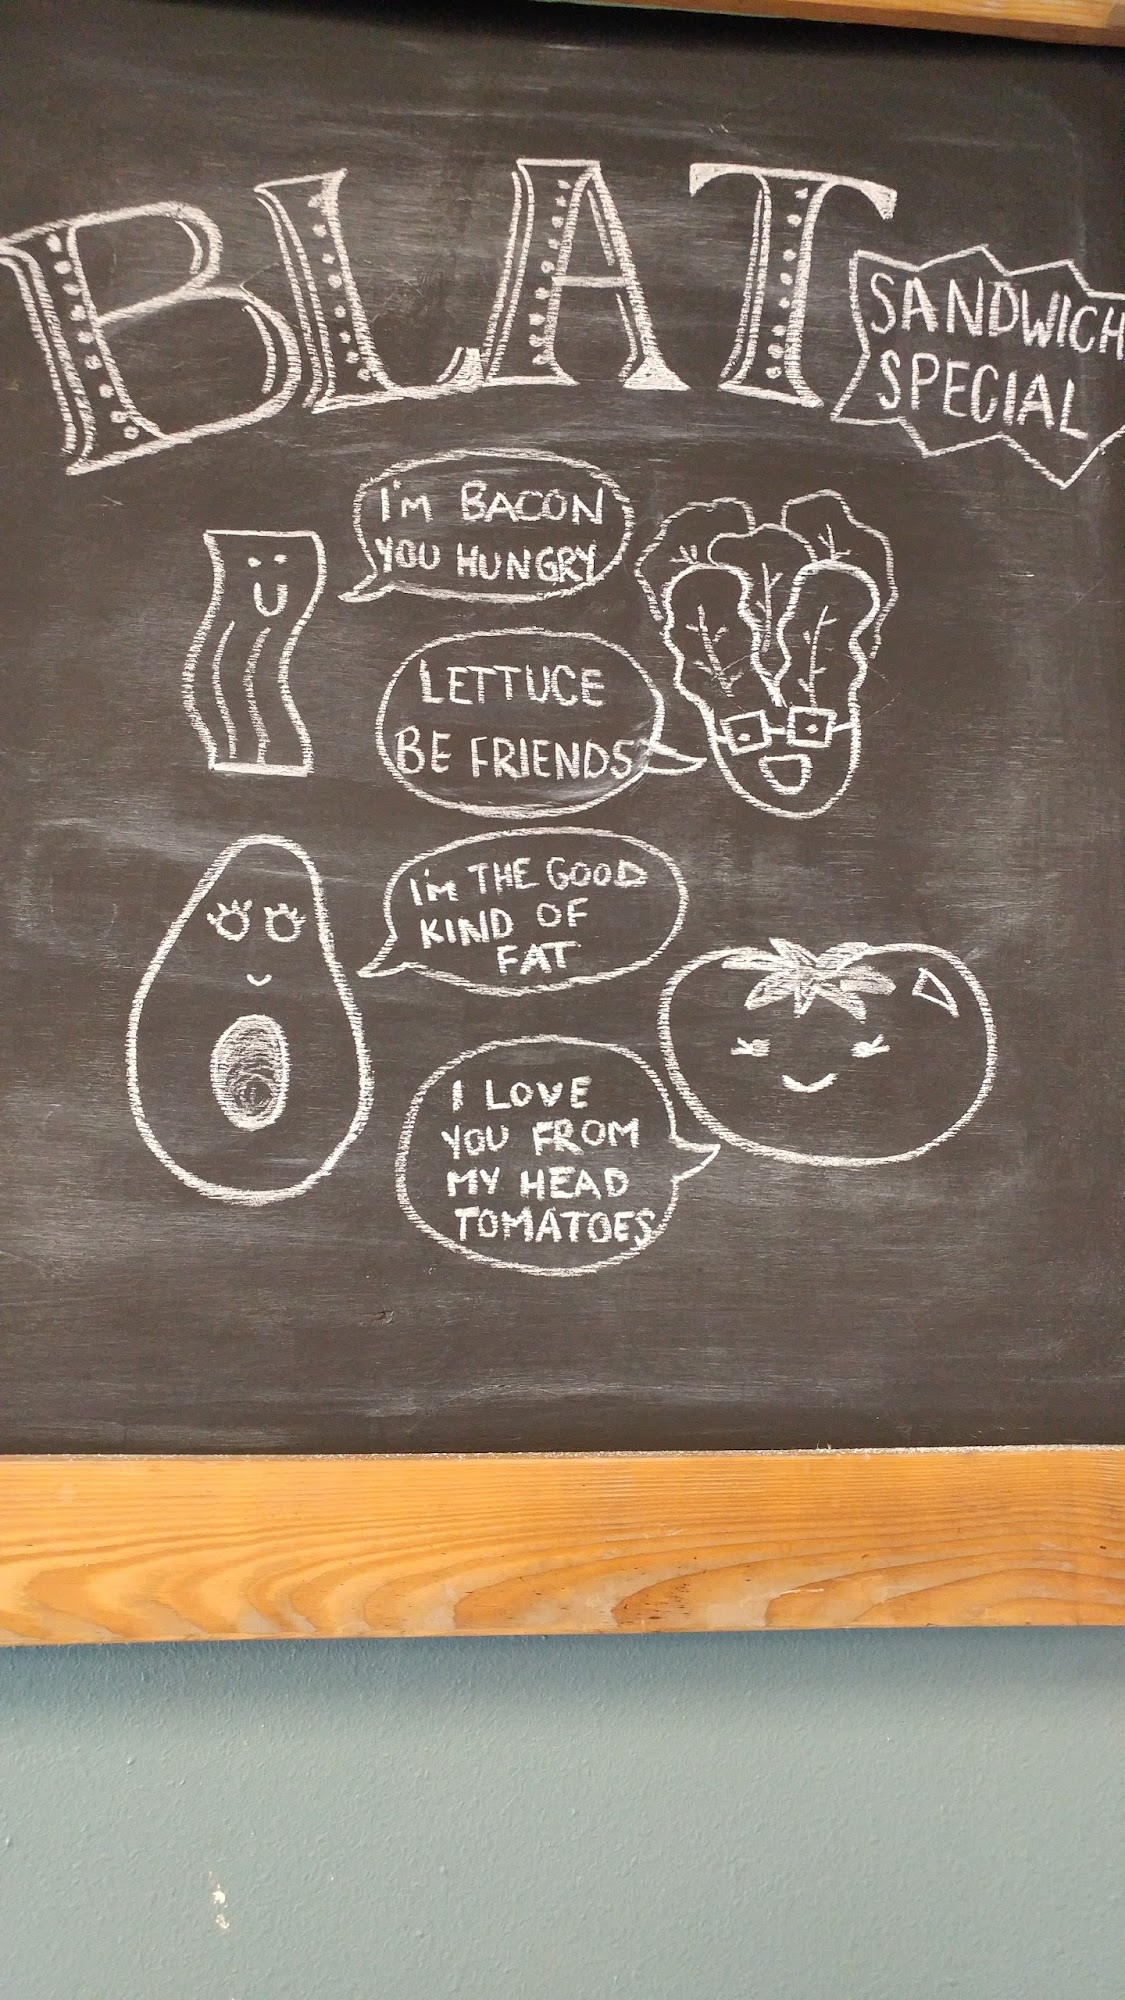 BLAT
SANDWICH
SPECIAL
I'm BACON
YOU HUNGRY
LETTUCE
BE FRIENDS
I'm THE GOOD
KIND OF
FAT
I LOVE
YOU FROM
MY HEAD
TOMATOES